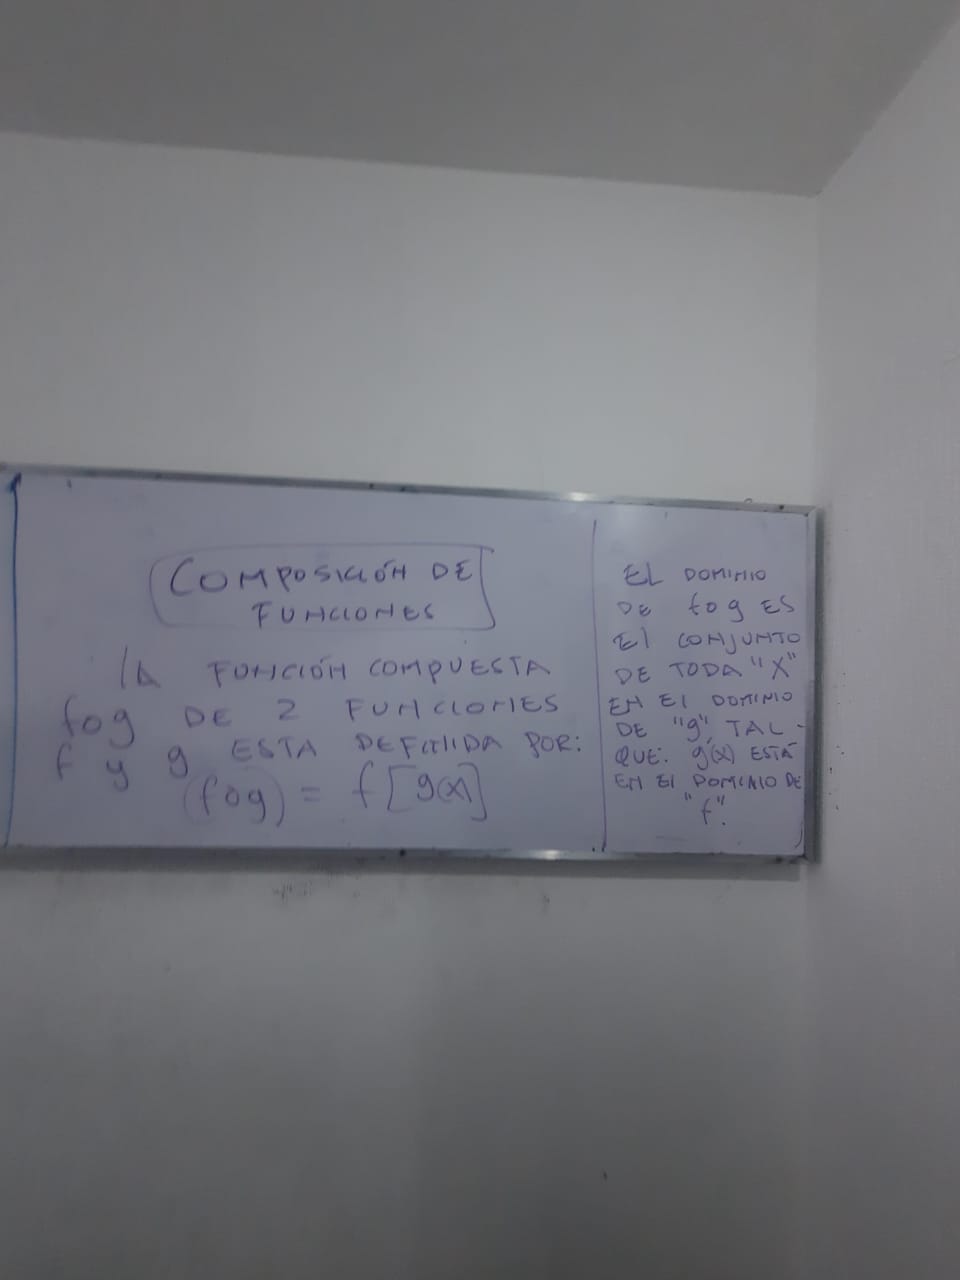 COMPOSICIÓN DE
FUNCIONES
lA FUNCIÓN COMPUESTA
fog DE 2 FUNCIONES
f y g ESTA DEFINIDA POR:
(fog) = f[g(x)]
EL DOMINIO
DE fog ES
El CONJUNTO
DE TODA "X"
EN El DOMINIO
DE "g", TAL -
QUE: g(x) ESTÁ
EN El DOMINIO DE
"f".